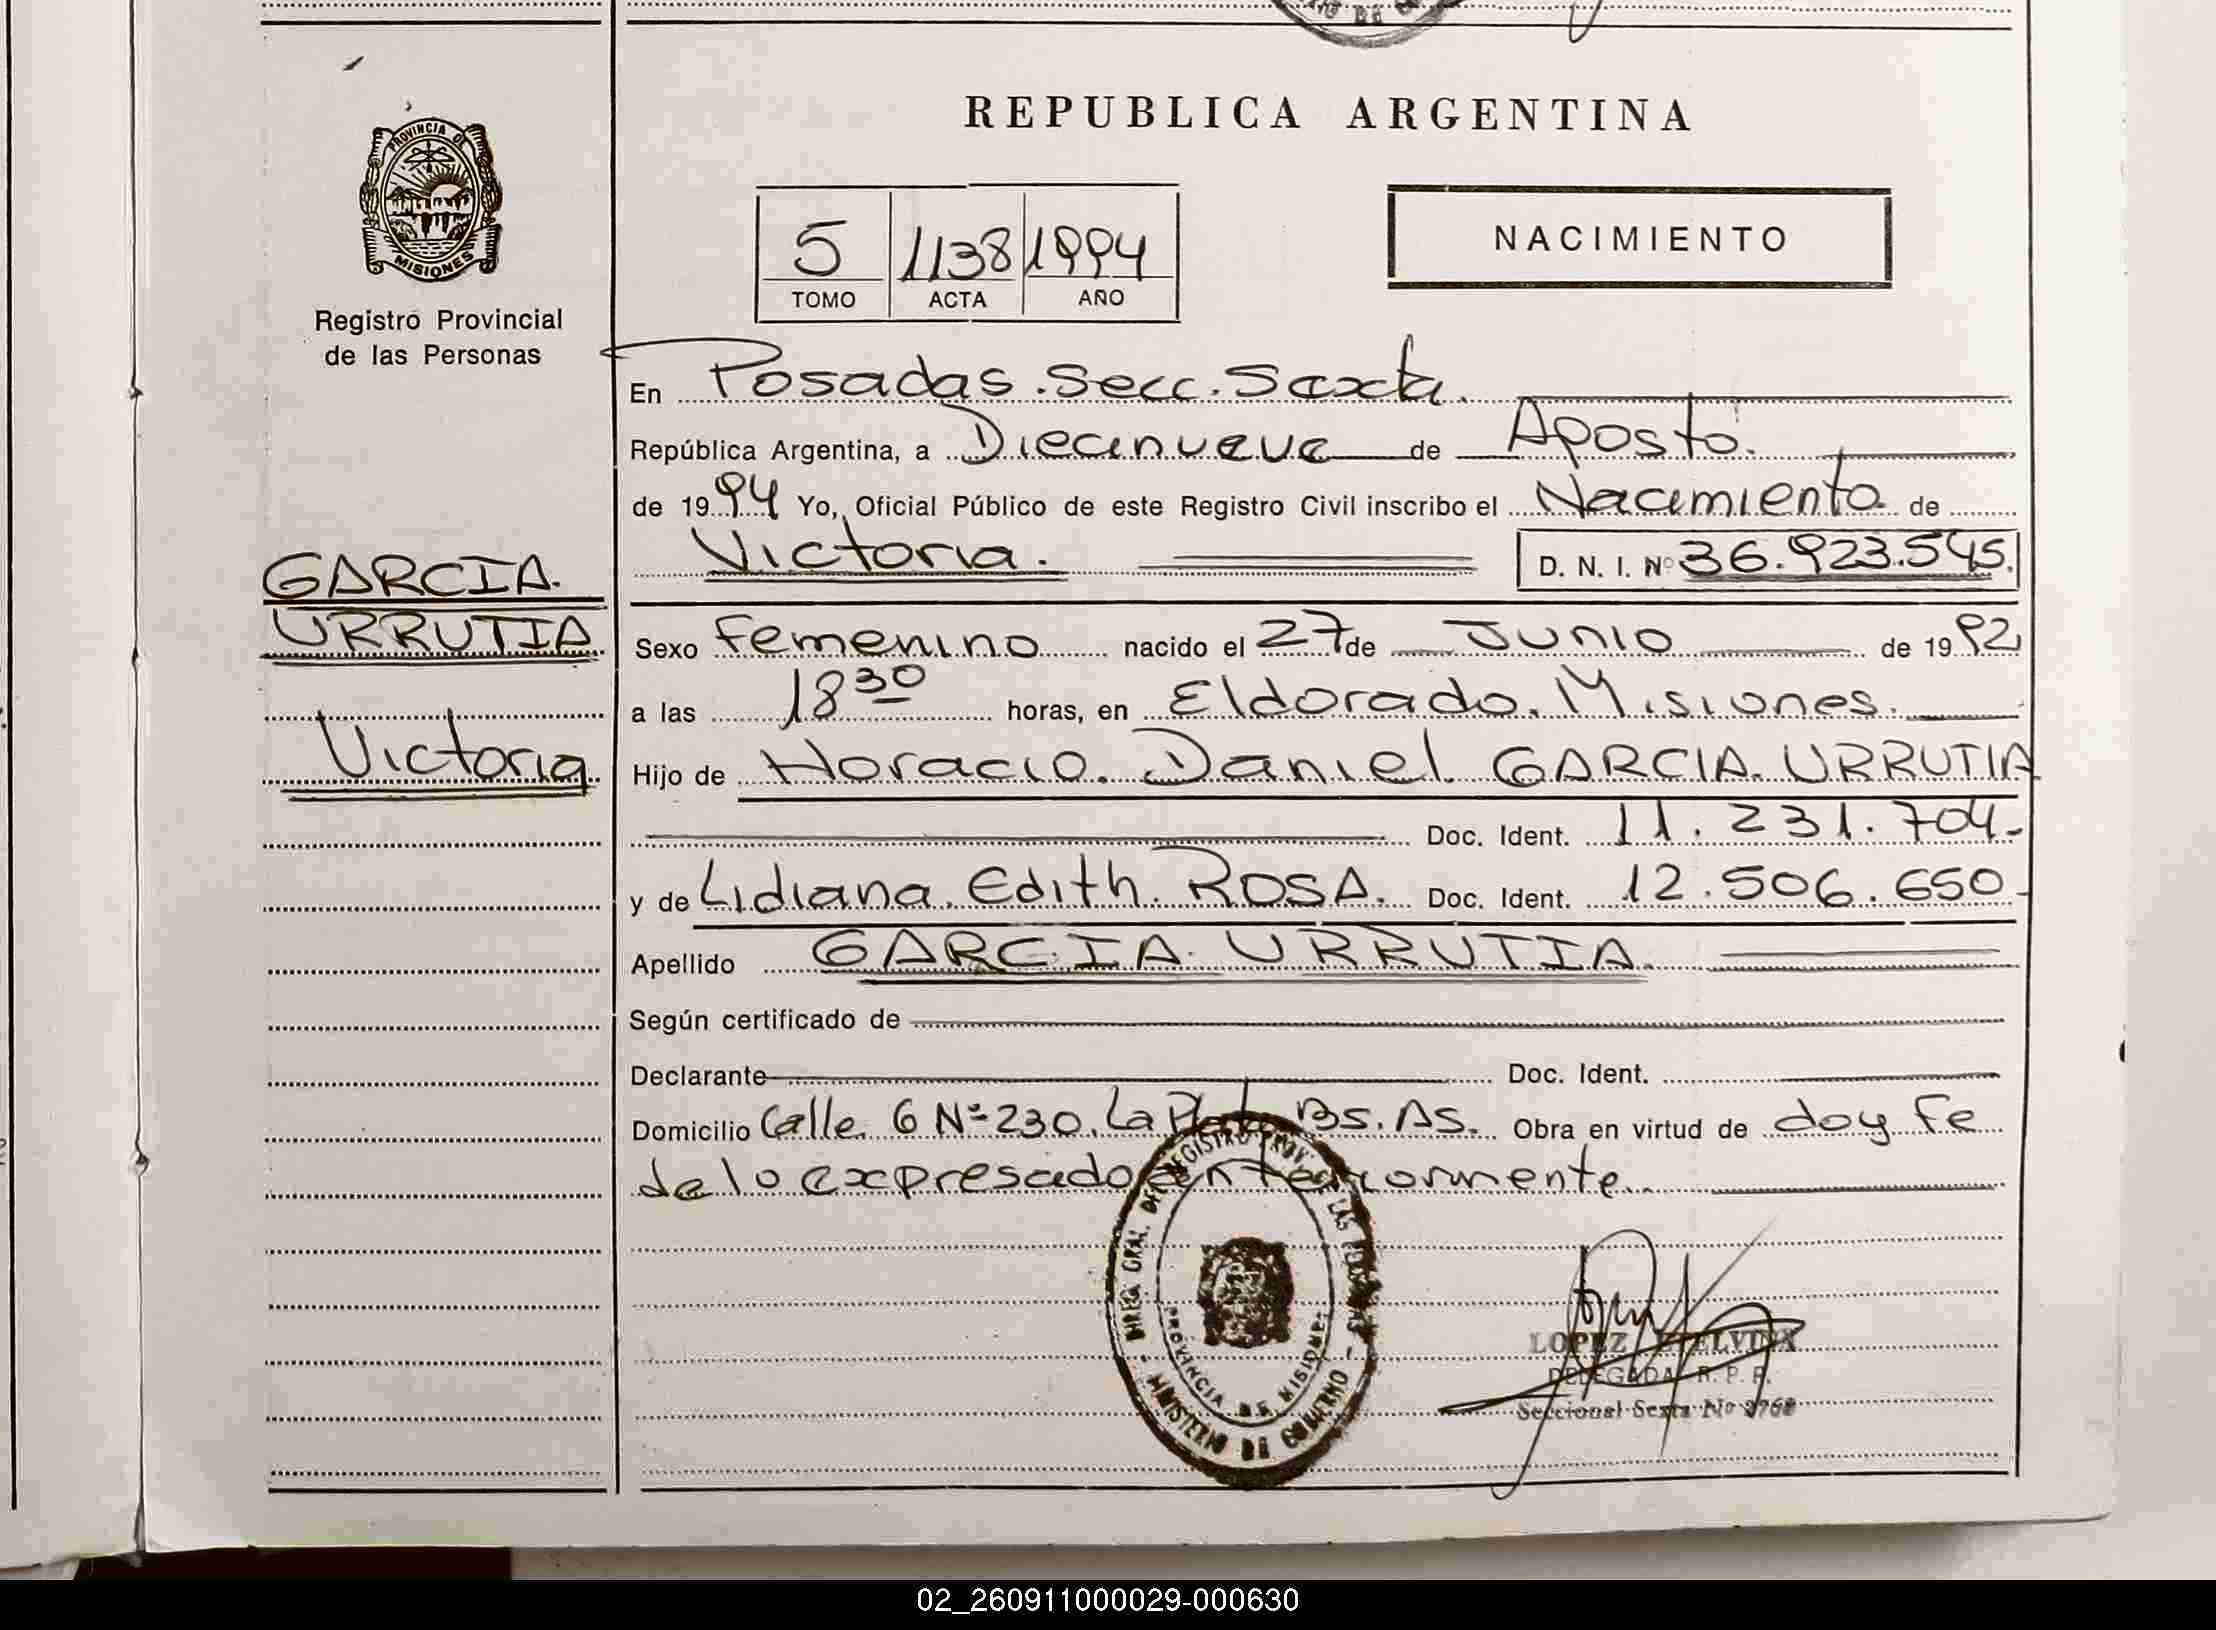 REPUBLICA ARGENTINA
PROVINCIA DE
MISIONES
Registro Provincial
de las Personas
5 1138 1994
TOMO ACTA AÑO
NACIMIENTO
En Posadas. Secc. Sexta.
República Argentina, a Diecinueve de Agosto.
de 1994 Yo, Oficial Público de este Registro Civil inscribo el Nacimiento de
Victoria. D. N. I. Nº 36.923.545.
GARCIA.
URRUTIA.
Victoria
Sexo Femenino nacido el 27 de Junio de 1992
a las 18 30 horas, en Eldorado. Misiones.
Hijo de Horacio. Daniel. GARCIA. URRUTIA
Doc. Ident. 11.231.704.-
y de Lidiana. Edith. ROSA. Doc. Ident. 12.506.650.-
Apellido GARCIA. URRUTIA.
Según certificado de
Declarante Doc. Ident.
Domicilio Calle 6 Nº 230. La Plata Bs. As. Obra en virtud de doy Fe
de lo expresado anteriormente.
DIREG. GRAL. DEL REGISTRO PROV. DE LAS PERSONAS
- MINISTERIO DE GOBIERNO -
PROVINCIA DE MISIONES
LOPEZ
DELEGADA R. P. P.
Seccional Sexta Nº 3768
02_260911000029-000630